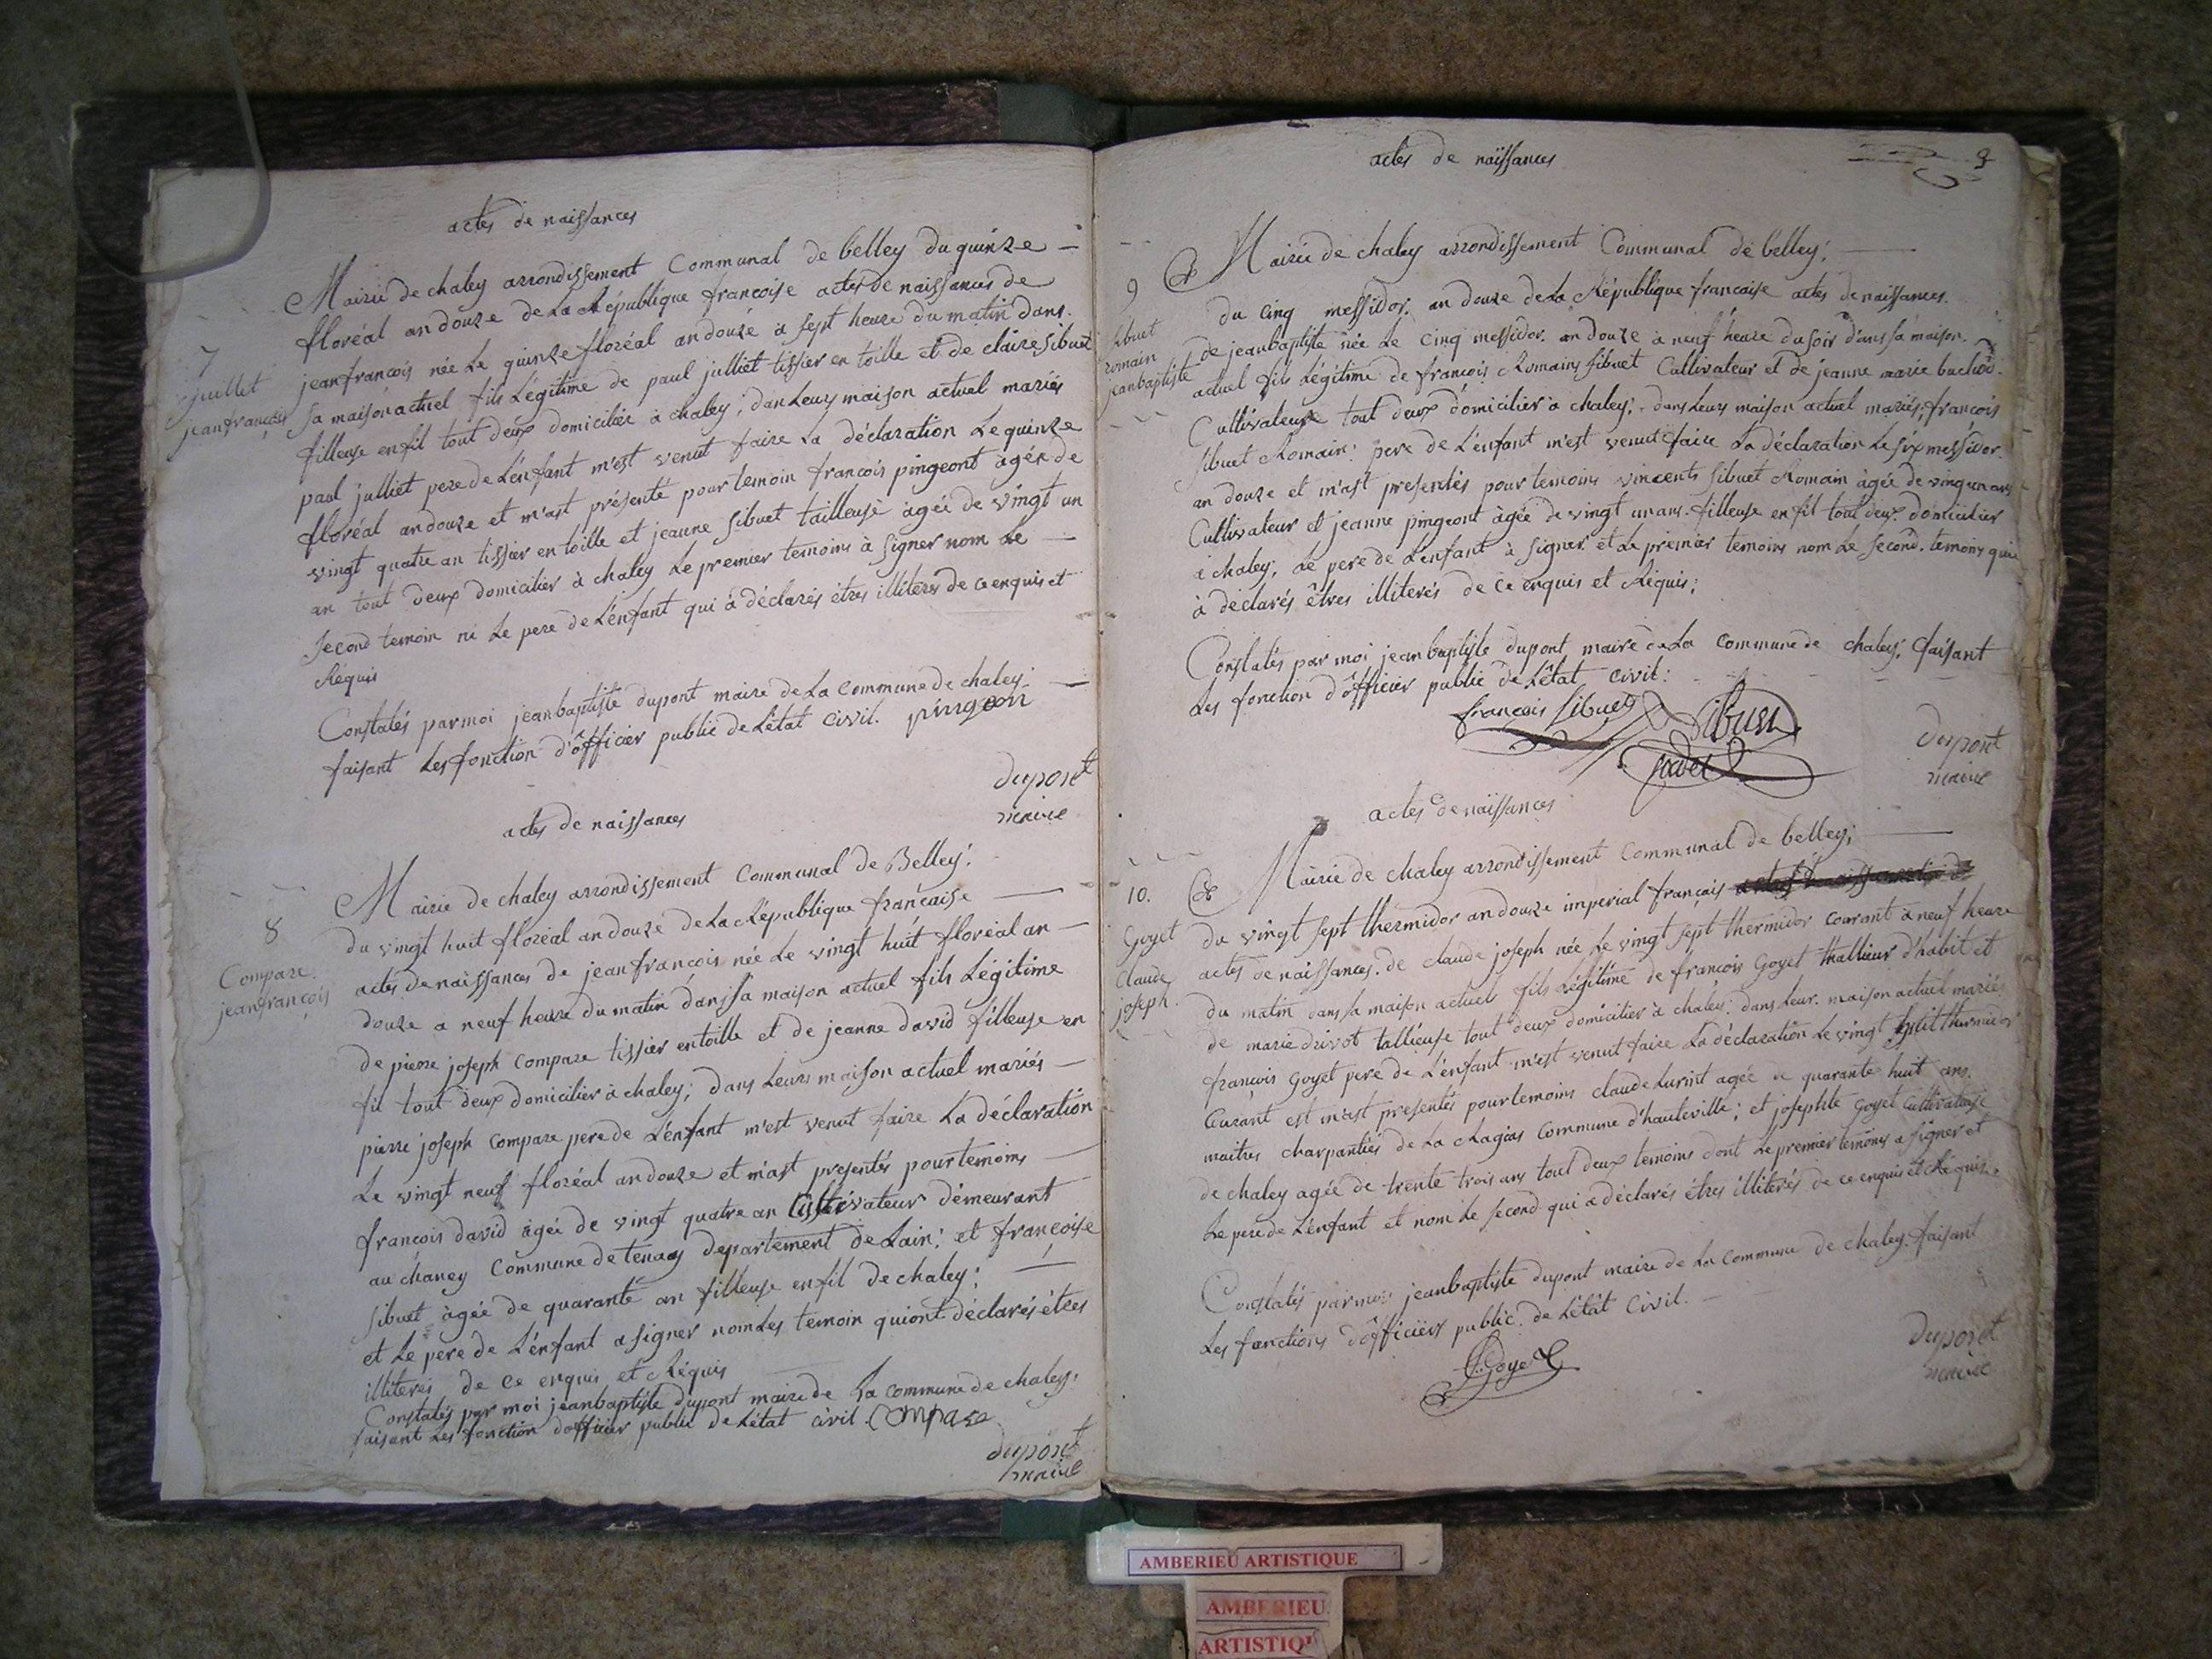 actes de naissances
Mairie de chaley arrondissement Communal de belley du quinze
floréal an douze de La République francoise actes de naissances de
7
juillet
jeanfrançois
jeanfrancois née Le quinze floréal an douze a sept heure du matin dans.
sa maison actuel fils Légitime de paul julliet tissier en toille et de claire sibuet
filleuse enfil tout deux domiciliée à chaley; dans Leurs maison actuel mariés
paul julliet pere de L'énfant m'est venut faire La déclaration Le quinze
floréal an douze et m'ast présenté pour temoin francois pingeont àgée de
vingt quatre an tissier en toille et jeanne sibuet tailleuse àgée de vingt un
an tout deux domicilier à chaley Le premier temoins à signer nom Le
second temoin ni Le pere de L'énfant qui à déclarés étres illiterés de ce enquis et
Réquis
Constatés par moi jeanbaptiste dupont maire de La Commune de chaley.
faisant Les fonction d'officier public de L'état Civil. pingeon
dupont
maire
actes de naissances
Mairie de chaley arrondissement Communal de Belley.
8
Compare.
jeanfrançois
du vingt huit floréal an douze de La République francaise
actes de naissances de jeanfrancois née Le vingt huit floréal an
douze a neuf heure du matin dans sa maison actuel fils Légitime
de pierre joseph Compare tissier en toille et de jeanne david filleuse en
fil tout deux domicilier à chaley; dans Leurs maison actuel mariés
pierre joseph Compare pere de L'énfant m'est venut faire La déclaration
Le vingt neuf floréal an douze et m'ast presentés pour temoins
francois david àgée de vingt quatre an Cultivateur démeurant
au chaney Commune de tenay departement de Lain; et francoise
sibuet àgée de quarante an filleuse enfil de chaley;
et Le pere de L'énfant a signer nom Les temoin qui ont déclarés étres
illiterés de Ce enquis et Réquis
Constatés par moi jeanbaptiste dupont maire de La Commune de chaley.
faisant Les fonction d'officier public de L'état Civil. Compare
dupont
maire
actes de naissances
9
Mairie de chaley arrondissement Communal de belley;
9
sibuet
romain
jeanbaptiste
du Cinq messidor. an douze de La République francaise actes de naissances.
de jeanbaptiste née Le Cinq messidor. an douze à neuf heure du soir dans sa maison.
actuel fils Légitime de francois Romains sibuet Cultivateur et de jeanne marie buchod.
Cultivateuse tout deux domicilier à chaley; dans Leurs maison actuel mariés; françois
sibuet Romain; pere de L'énfant m'est venut faire La déclaration Le six messidor.
an douze et m'ast presentés pour temoins vincents sibuet Romain àgée de vingunans
Cultivateur et jeanne pingeont àgée de vingt un ans. filleuse enfil tout deux domicilier
à chaley; Le pere de L'énfant à signer et Le premier temoins nom Le second. temoins qui
à déclarés êtres illiterés de Ce enquis et Réquis;
Constatés par moi jeanbaptiste dupont maire de La Commune de chaley. faisant
Les fonction d'officier public de L'état Civil:
francois Sibuet Sibuet
dupont
maire
actes de naissances
10.
Goyet
Claude
joseph.
Mairie de chaley arrondissement Communal de belley;
du vingt sept thermidor an douze imperial français
actes de naissances. de claude joseph née Le vingt sept thermidor courant à neuf heure
du matin dans sa maison actuel fils Légitime de françois Goyet thallieur d'habit et
de marie drivot tallieuse tout deux domicilier à chaley; dans Leur. maison actuel mariés
françois Goyet pere de L'énfant m'est venut faire La déclaration Le vingt thermidor
Courant est m'ast presentés pour temoins claude agée de quarante huit ans.
maitres charpantiés de La Commune d'hauteville; et josephte Goyet Cultivateuse
de chaley agée de trente trois ans tout deux temoins dont Le premier temoins a signer et
Le pere de L'énfant et nom Le second qui a déclarés étres illiterés de ce enquis et Réquis.
Constatés par moi jeanbaptiste dupont maire de La Commune de chaley. faisant
Les fonctions d'officiers public. de L'état Civil.
Goyet
dupont
maire
AMBERIEU ARTISTIQUE
AMBERIEU
ARTISTIQU